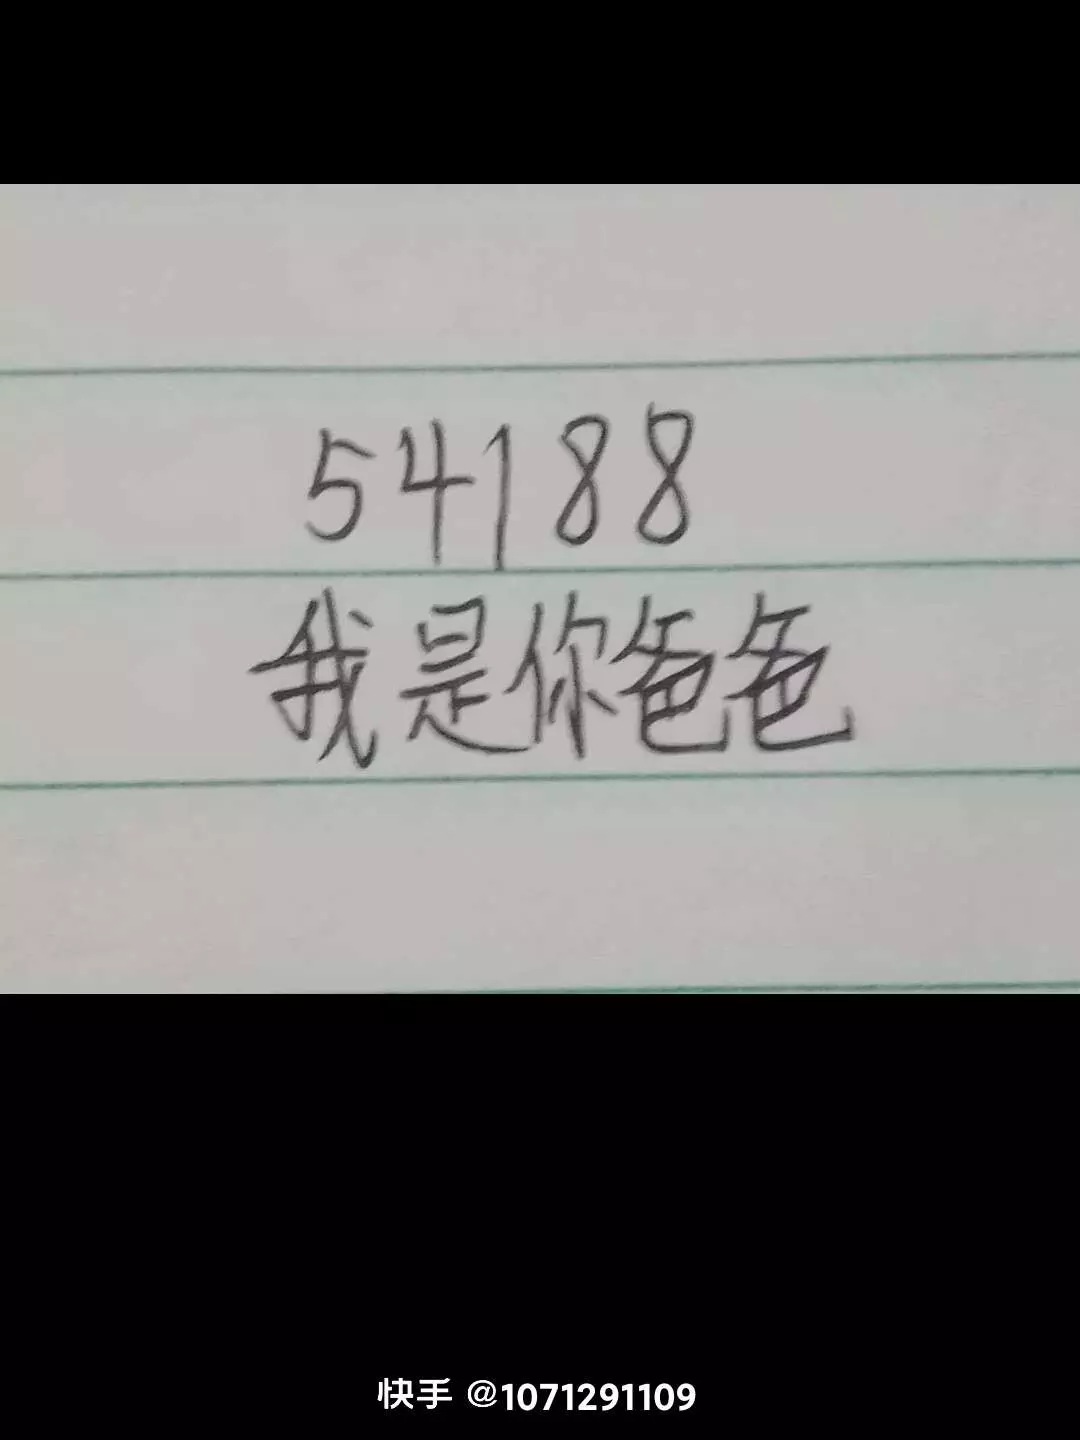 54188
我是你爸爸
快手 @1071291109